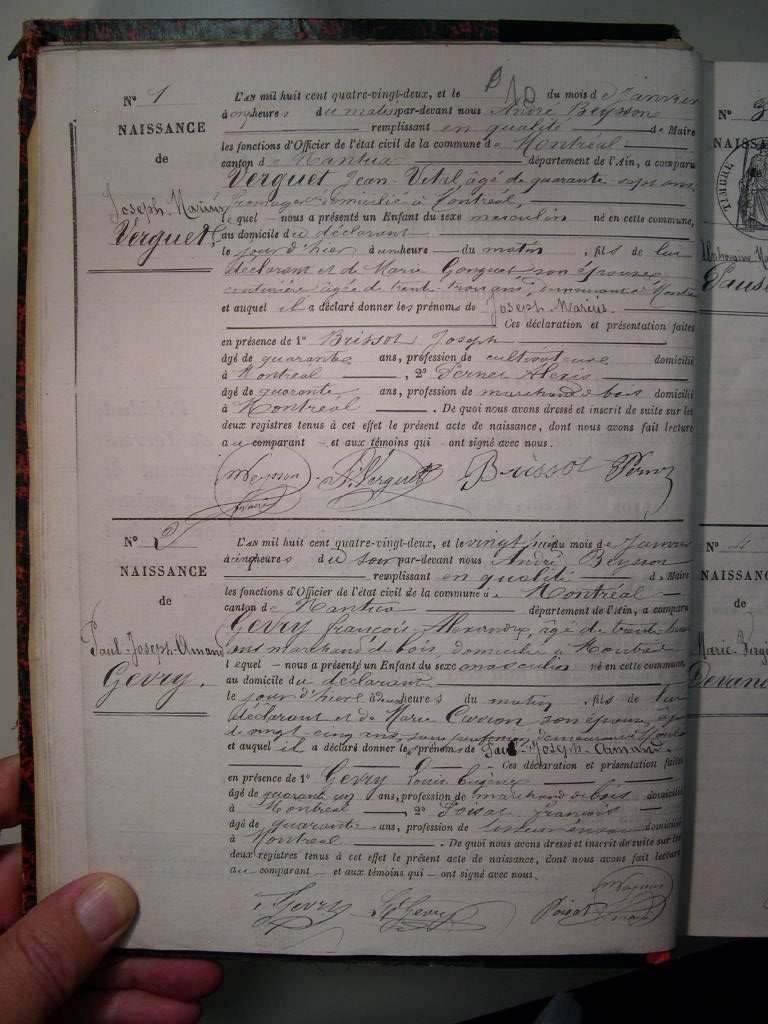 N° 1
NAISSANCE
de
Joseph-Marius
Verguet.
L'AN mil huit cent quatre-vingt-deux, et le 10 du mois de Janvier
à onze heures du matin par-devant nous André Beysson
remplissant en qualité de Maire
les fonctions d'Officier de l'état civil de la commune de Montréal
canton de Nantua département de l'Ain, a comparu
Verguet Jean-Vital, âgé de quarante-sept ans,
fromager domicilié à Montréal,
lequel nous a présenté un Enfant du sexe masculin né en cette commune,
au domicile du déclarant
le jour d'hier à une heure du matin, fils de lui
déclarant et de Marie Gonguet son épouse,
couturière âgée de trente-trois ans, demeurant à Montréal
et auquel il a déclaré donner les prénoms de Joseph Marius.
Ces déclaration et présentation faites
en présence de 1° Brissot Joseph
âgé de quarante ans, profession de cultivateur domicilié
à Montréal, 2° Pernet Alexis
âgé de quarante ans, profession de marchand de bois domicilié
à Montréal. De quoi nous avons dressé et inscrit de suite sur les
deux registres tenus à cet effet le présent acte de naissance, dont nous avons fait lecture
au comparant et aux témoins qui ont signé avec nous.
Beysson Verguet Brissot Pernet
maire
N° 2
NAISSANCE
de
Paul-Joseph-Amand
Gevry.
L'AN mil huit cent quatre-vingt-deux, et le vingt du mois de Janvier
à cinq heures du soir par-devant nous André Beysson
remplissant en qualité de Maire
les fonctions d'Officier de l'état civil de la commune de Montréal
canton de Nantua département de l'Ain, a comparu
Gevry françois Alexandre, âgé de trente
ans marchand de bois, domicilié à Montréal
lequel nous a présenté un Enfant du sexe masculin né en cette commune,
au domicile du déclarant
le jour d'hier à heures du matin, fils de lui
déclarant et de Marie son épouse, âgée
de vingt-cinq ans, sans profession, demeurant à Montréal
et auquel il a déclaré donner les prénoms de Paul-Joseph-Amand
Ces déclaration et présentation faites
en présence de 1° Gevry Louis Eugène
âgé de quarante un ans, profession de marchand de bois domicilié
à Montréal, 2° Poisat François
âgé de quarante ans, profession de domicilié
à Montréal. De quoi nous avons dressé et inscrit de suite sur les
deux registres tenus à cet effet le présent acte de naissance, dont nous avons fait lecture
au comparant et aux témoins qui ont signé avec nous.
Gevry Gevry Poisat Beysson
maire
N° 3
NAISSANCE
TIMBRE
N° 4
NAISSANCE
de